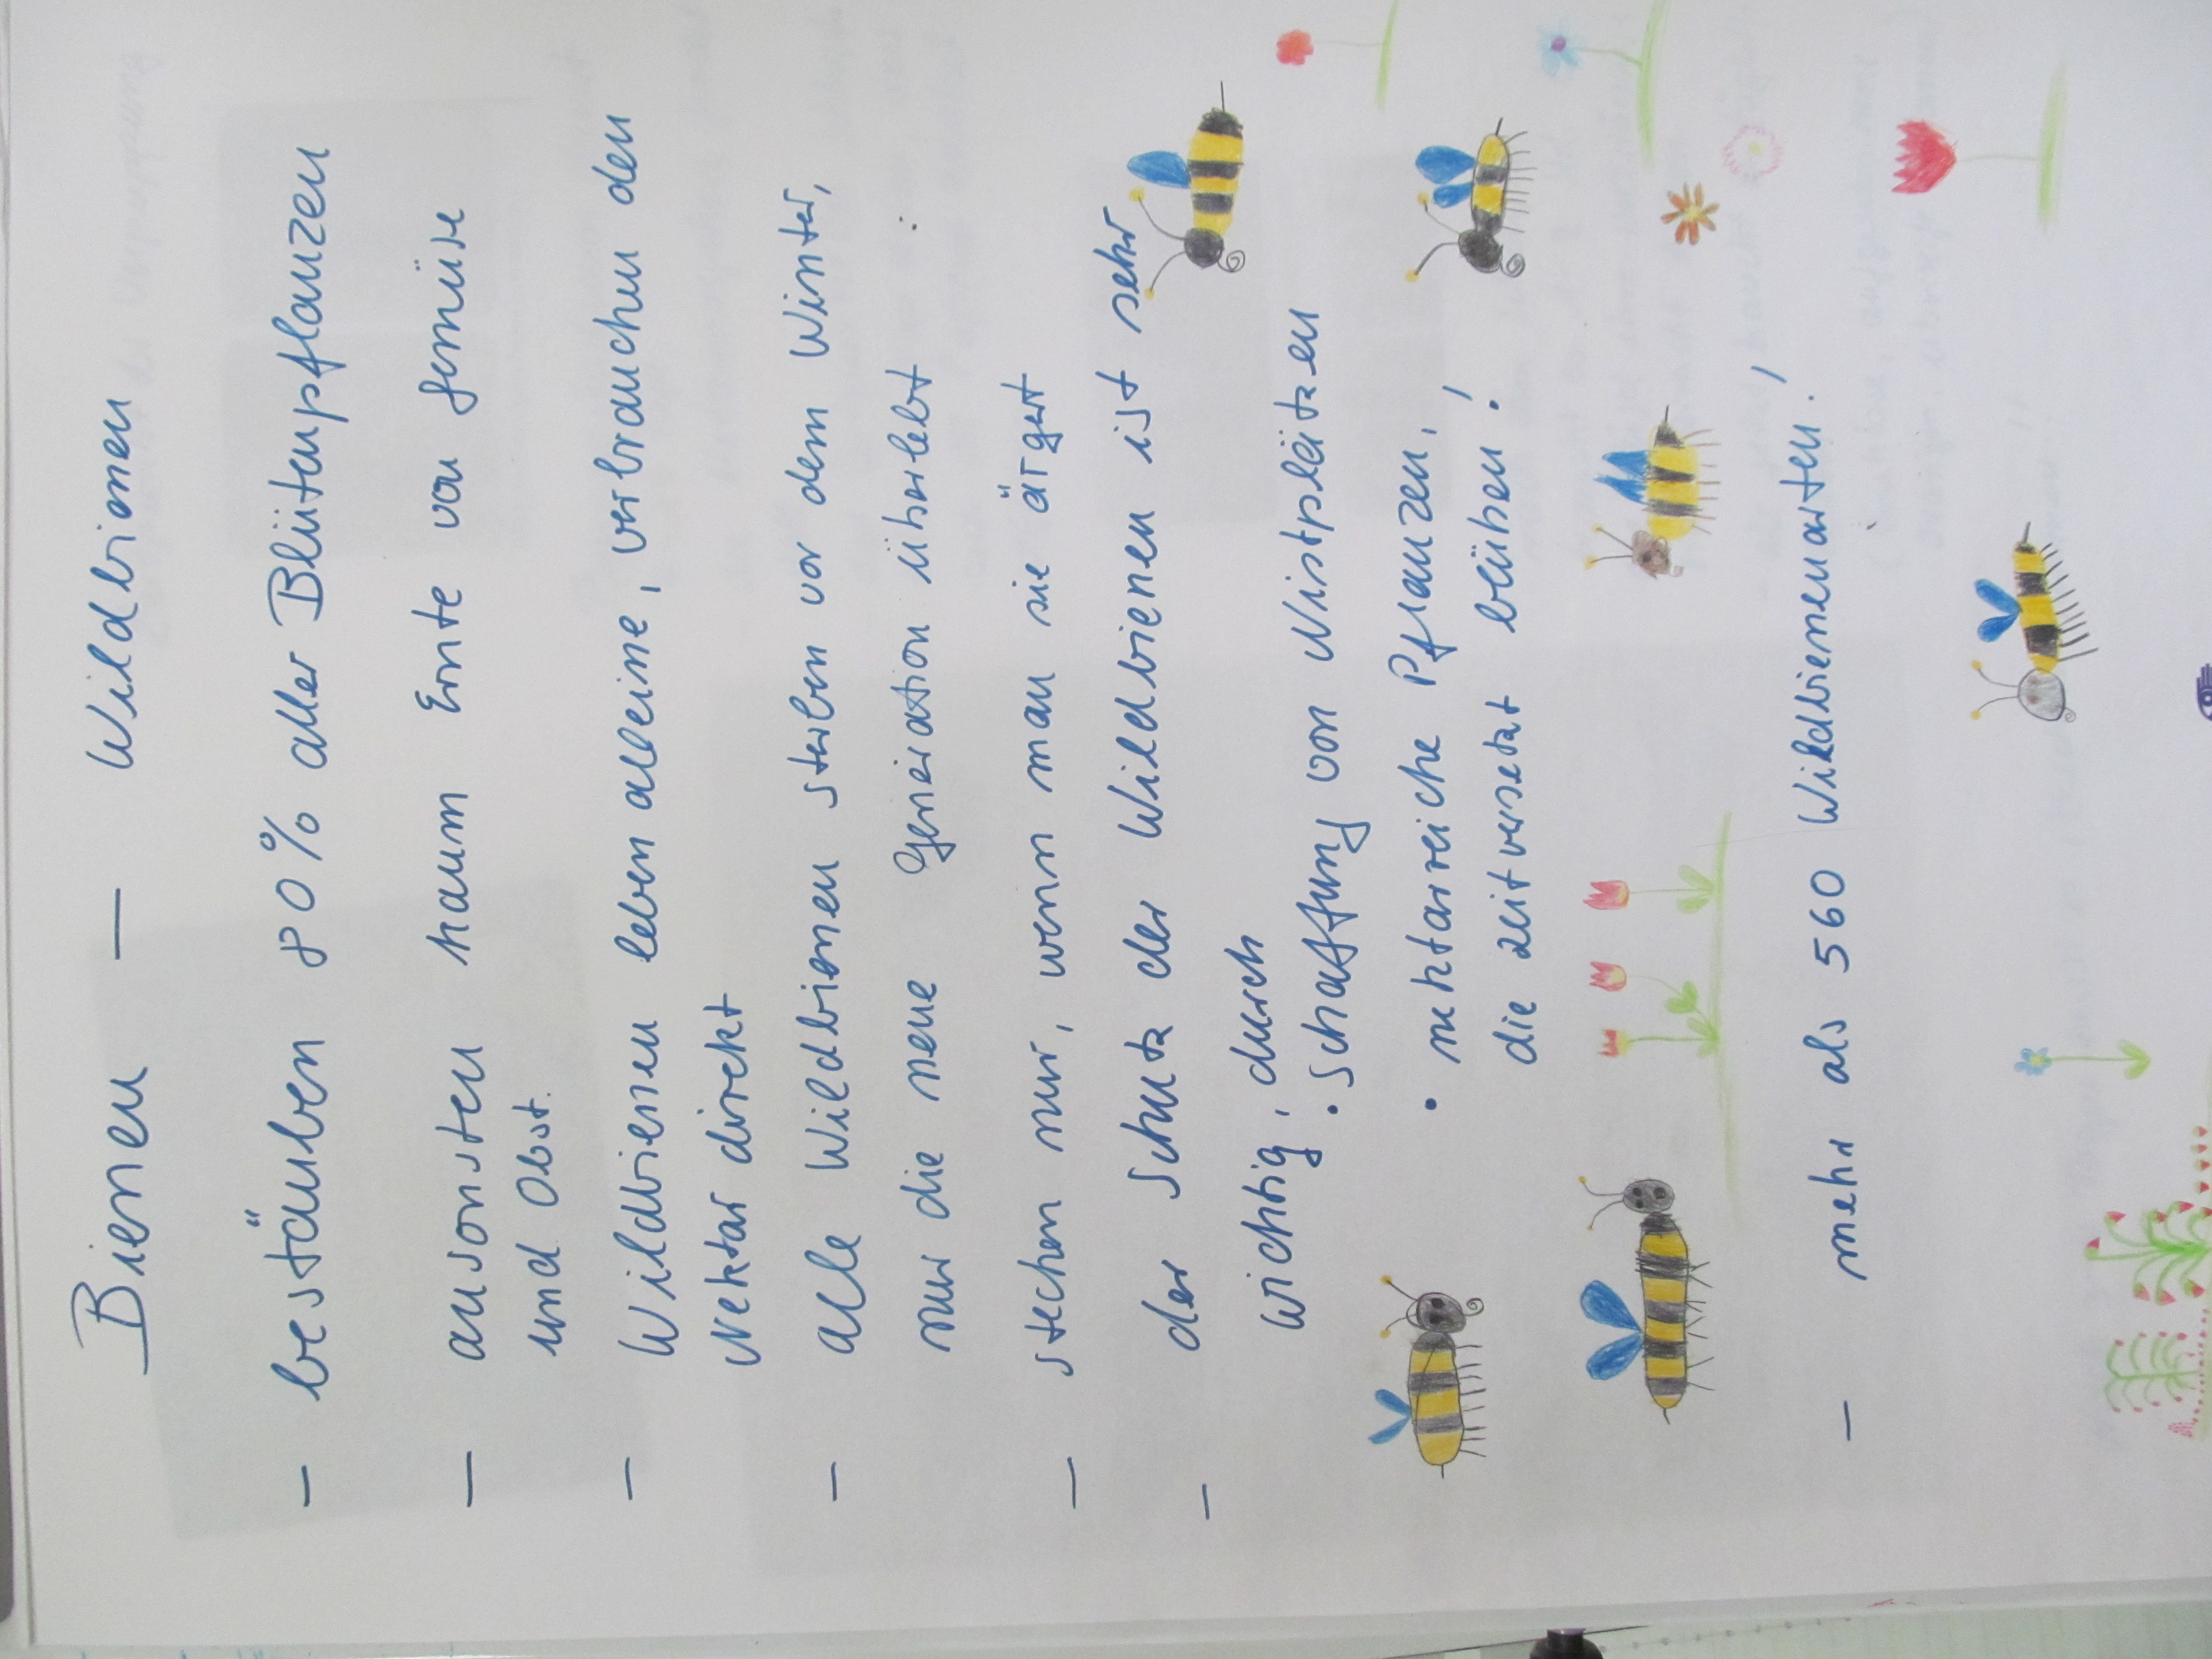 Bienen – Wildbienen
– bestäuben 80% aller Blütenpflanzen
– ansonsten kaum Ernte von Gemüse
und Obst.
– Wildbienen leben alleine, verbrauchen den
Nektar direkt
– alle Wildbienen sterben vor dem Winter,
nur die neue Generation überlebt
– stechen nur, wenn man sie ärgert
– der Schutz der Wildbienen ist sehr
wichtig, durch
· Schaffung von Nistplätzen
· nektarreiche Pflanzen,
die zeitversetzt blühen!
– mehr als 560 Wildbienenarten!